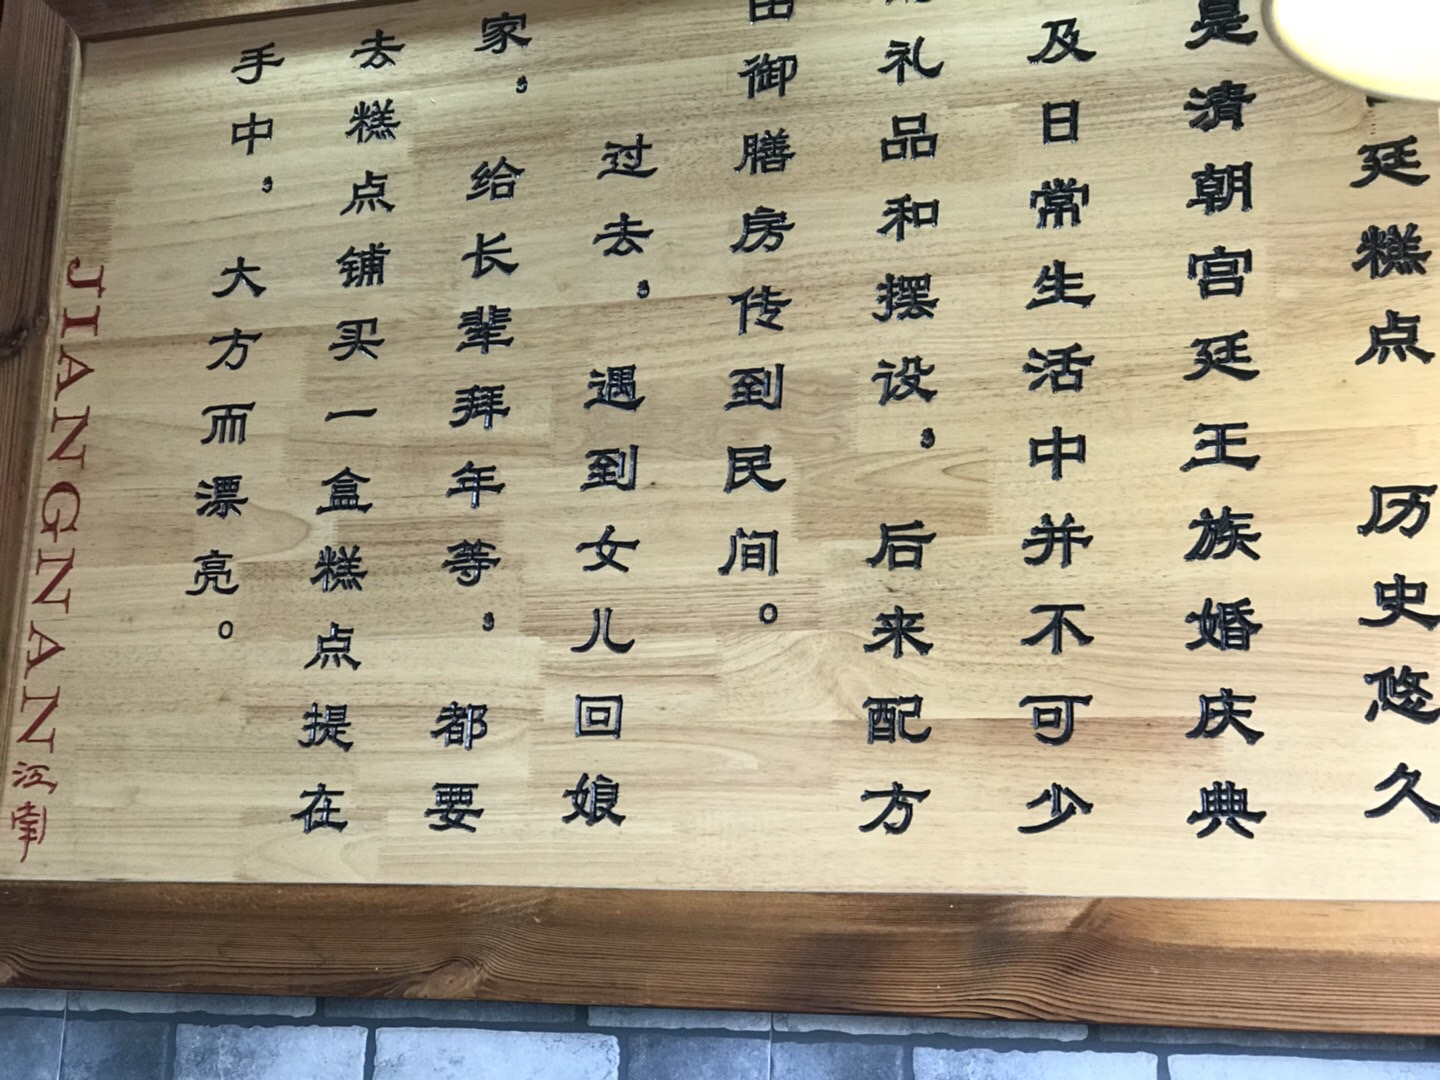 廷糕点 历史悠久
是清朝宫廷王族婚庆典
及日常生活中并不可少
礼品和摆设，后来配方
由御膳房传到民间。
过去，遇到女儿回娘
家，给长辈拜年等，都要
去糕点铺买一盒糕点提在
手中，大方而漂亮。
JIANGNAN江南